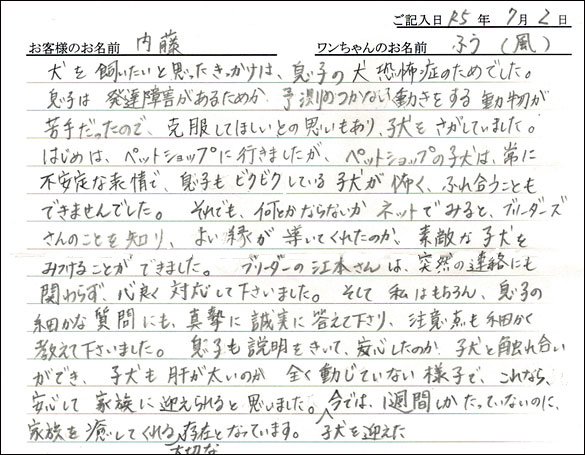 ご記入日 R5 年 7 月 2 日
お客様のお名前 内藤 ワンちゃんのお名前 ふう (風)
犬を飼いたいと思ったきっかけは、息子の犬恐怖症のためでした。
息子は 発達障害があるためか 予測のつかない動きをする動物が
苦手だったので、克服してほしいとの思いもあり、子犬をさがしていました。
はじめは、ペットショップに行きましたが、ペットショップの子犬は、常に
不安定な表情で、息子もビクビクしている子犬が怖く、ふれ合うことも
できませんでした。 それでも、何とかならないか ネットでみると、ブリーダーズ
さんのことを知り、よい縁が導いてくれたのか、素敵な子犬を
みつけることができました。 ブリーダーの江本さんは、突然の連絡にも
関わらず、心良く対応して下さいました。そして 私はもちろん、息子の
細かな質問にも、真摯に誠実に答えて下さり、注意点も細かく
教えて下さいました。 息子も説明をきいて、安心したのか 子犬と触れ合い
ができ、子犬も肝が太いのか 全く動じていない様子で、これなら、
安心して 家族に迎えられると思いました。今では、1週間しかたっていないのに、
家族を癒してくれる大切な存在となっています。 子犬を迎えた